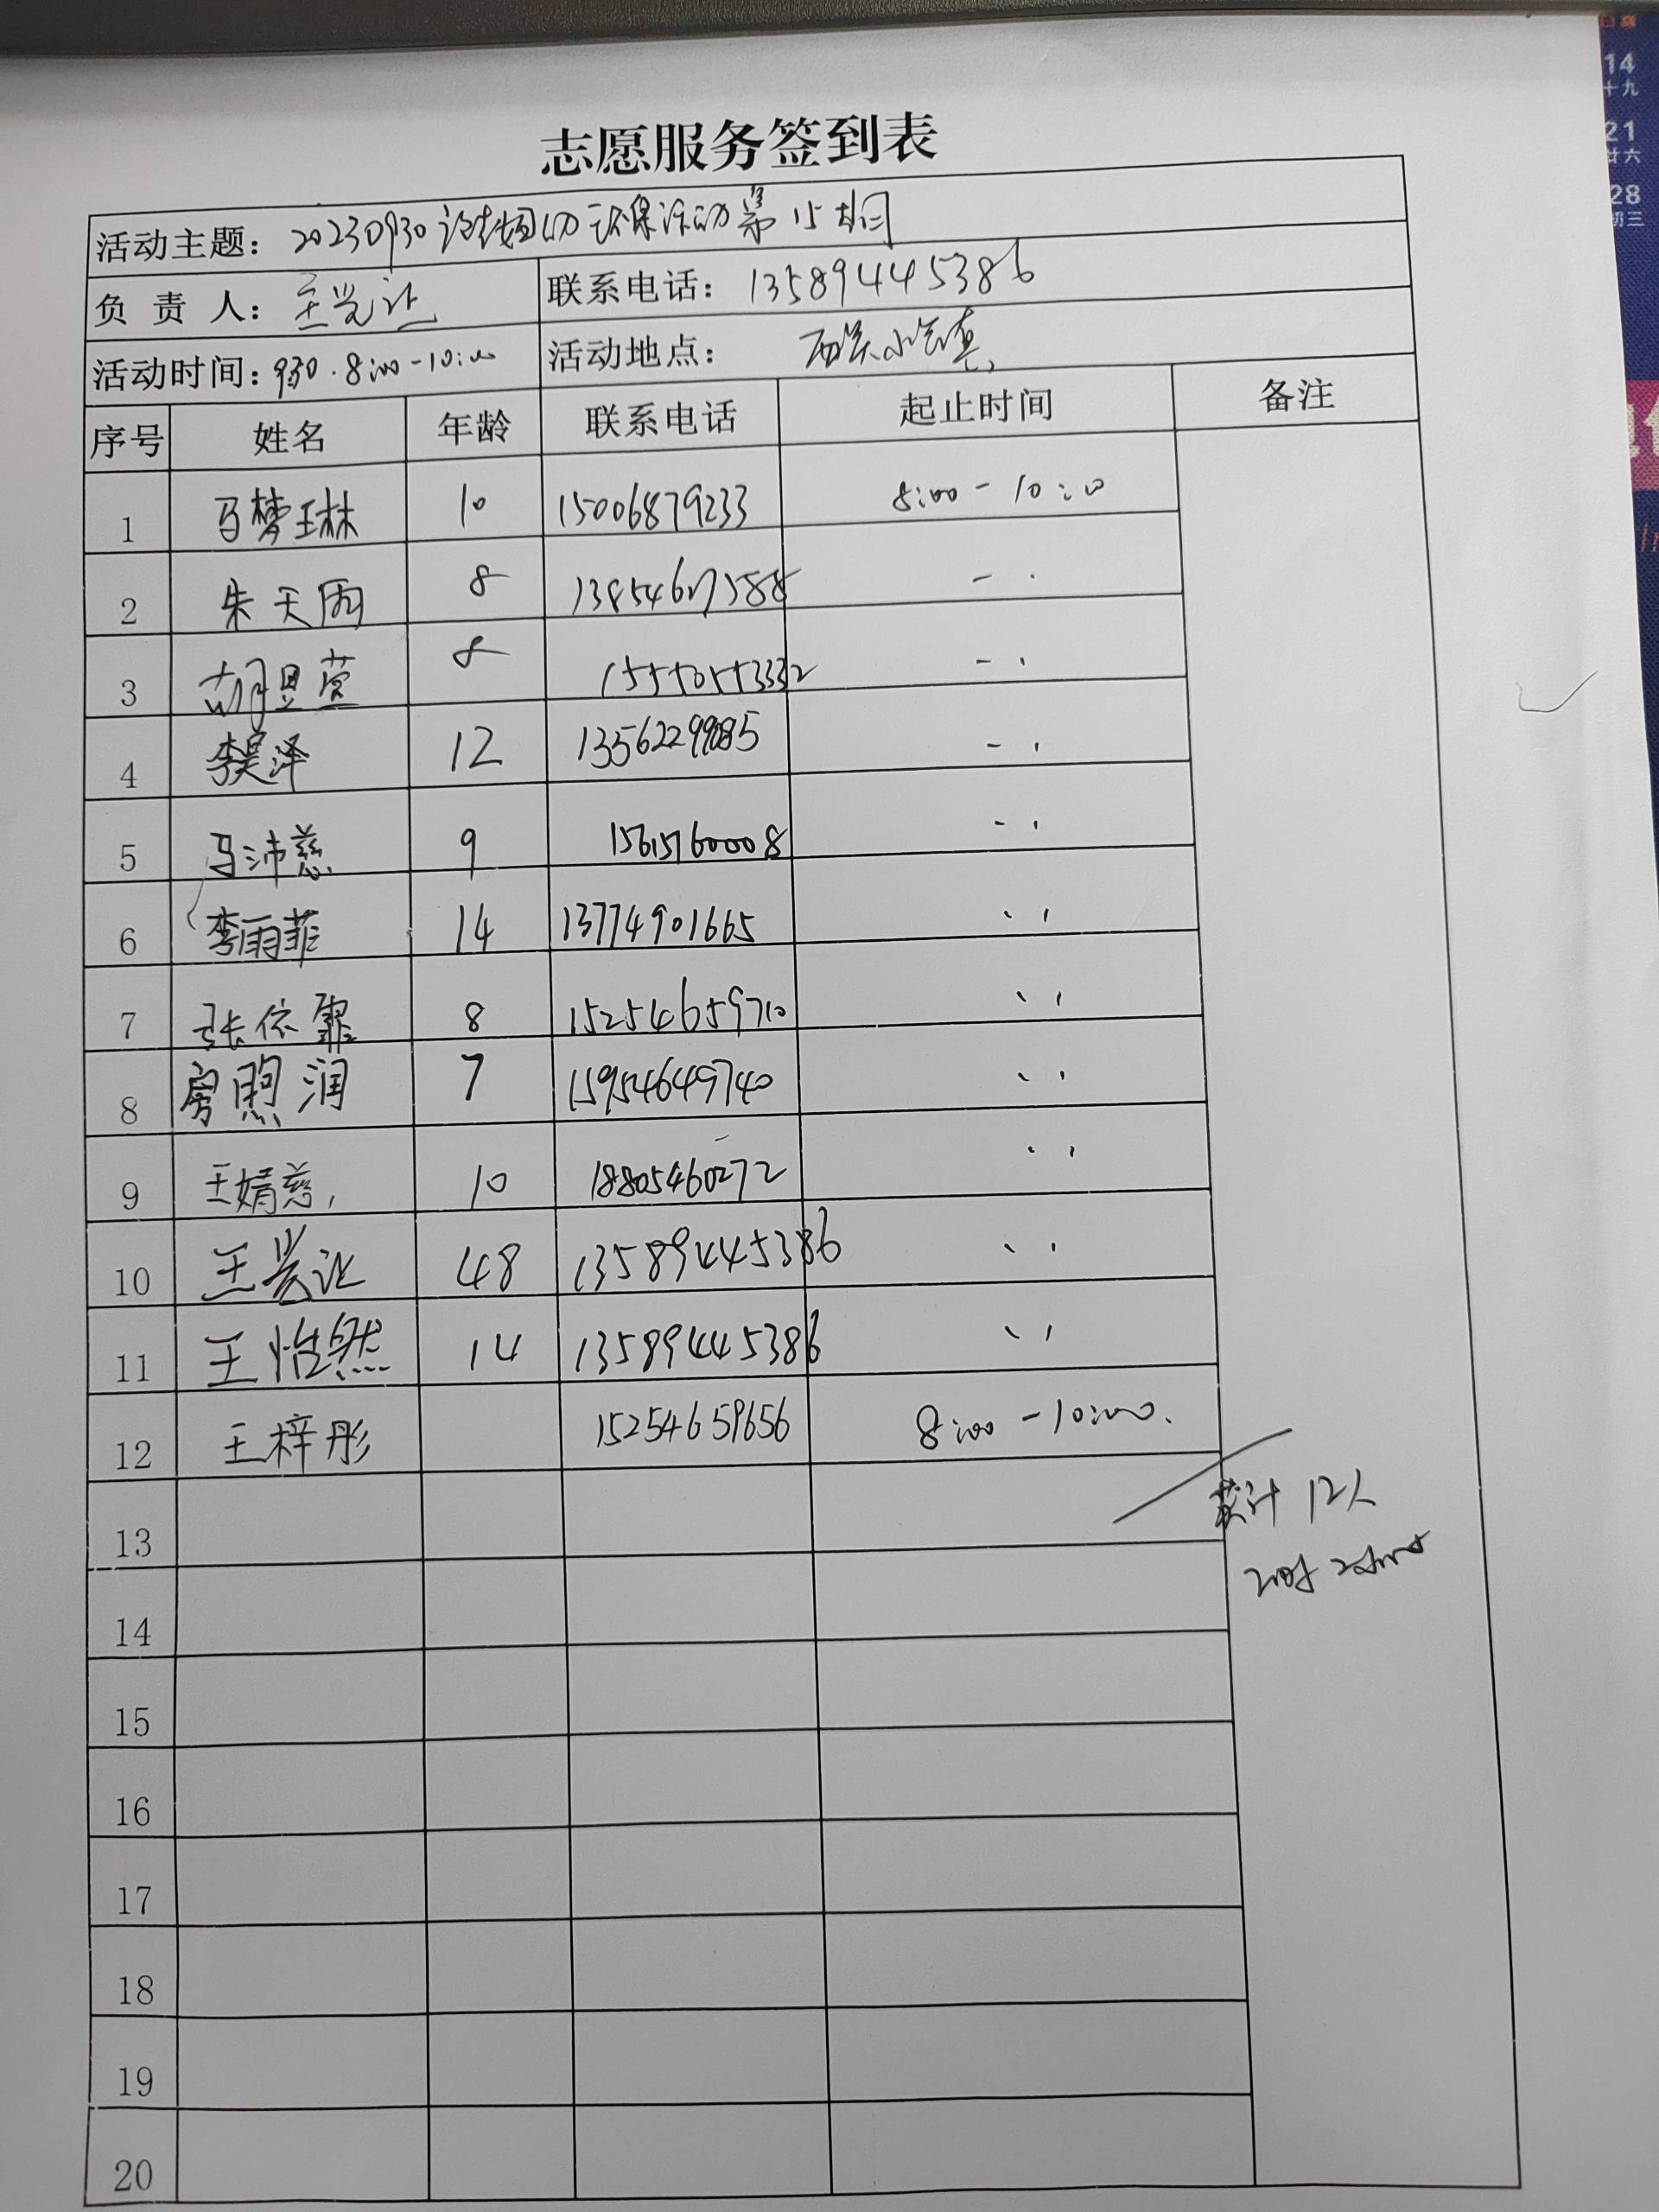 志愿服务签到表
活动主题: 20230930 活动 环保活动第15期
负责人: 王兴让 联系电话: 13589445386
活动时间: 930.8:00-10:00 活动地点: 西
序号 姓名 年龄 联系电话 起止时间 备注
1 马梦琳 10 15006879233 8:00-10:00
2 朱天雨 8
3 胡昱萱 8
4 李昊泽 12
5 马沛慈 9 15615760008
6 李雨菲 14 13774901665
7 张依霏 8 15254659710
8 房煦润 7 15954649740
9 王婧慈 10 18805460272
10 王兴让 48 13589445386
11 王怡然 14 13589445386
12 王梓彤 15254659656 8:00-10:00
13 共计12人
14
15
16
17
18
19
20
14
十九
21
廿六
28
初三